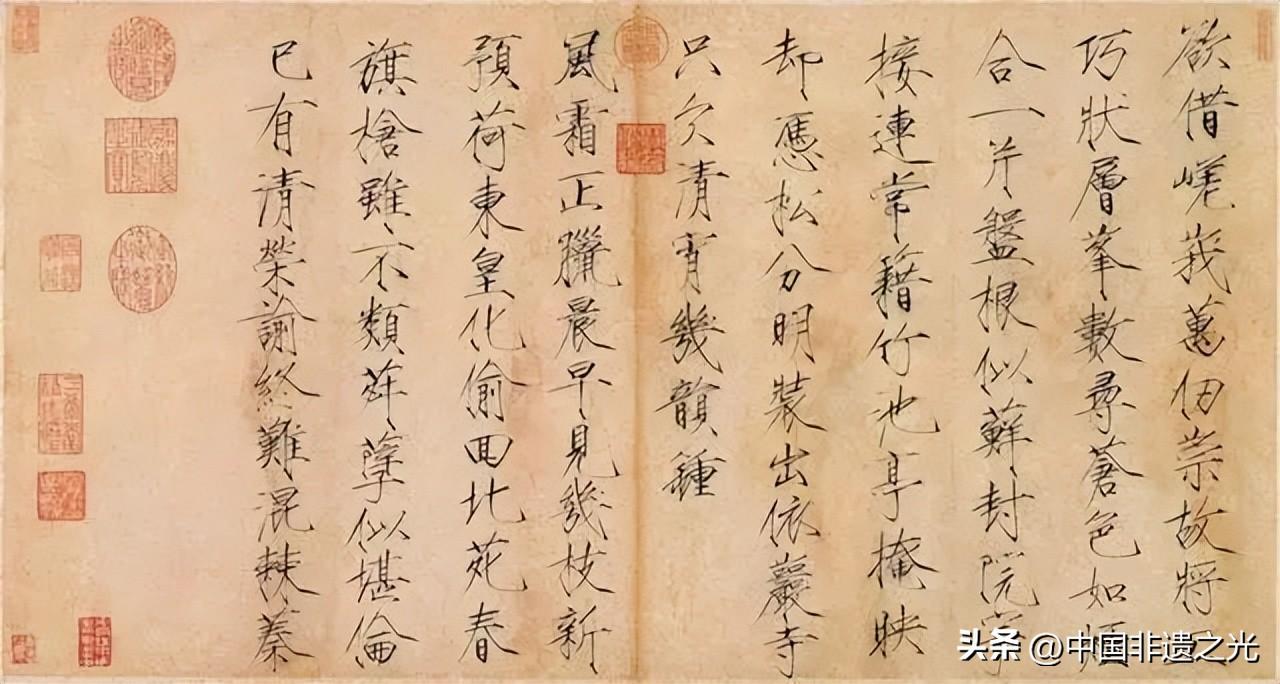 欲借嵯峩萬仞崇故將
巧狀層峯數尋蒼色如煙
合一片盤根似蘚封院宇
接連常籍竹池亭掩映
却憑松分明裝出依巖寺
只欠清宵幾韻鍾
風霜正臘晨早見幾枝新
預荷東皇化偷回北苑春
旗槍雖不類荈孽似堪倫
已有清榮諭終難混棘蓁
头条 @中国非遗之光